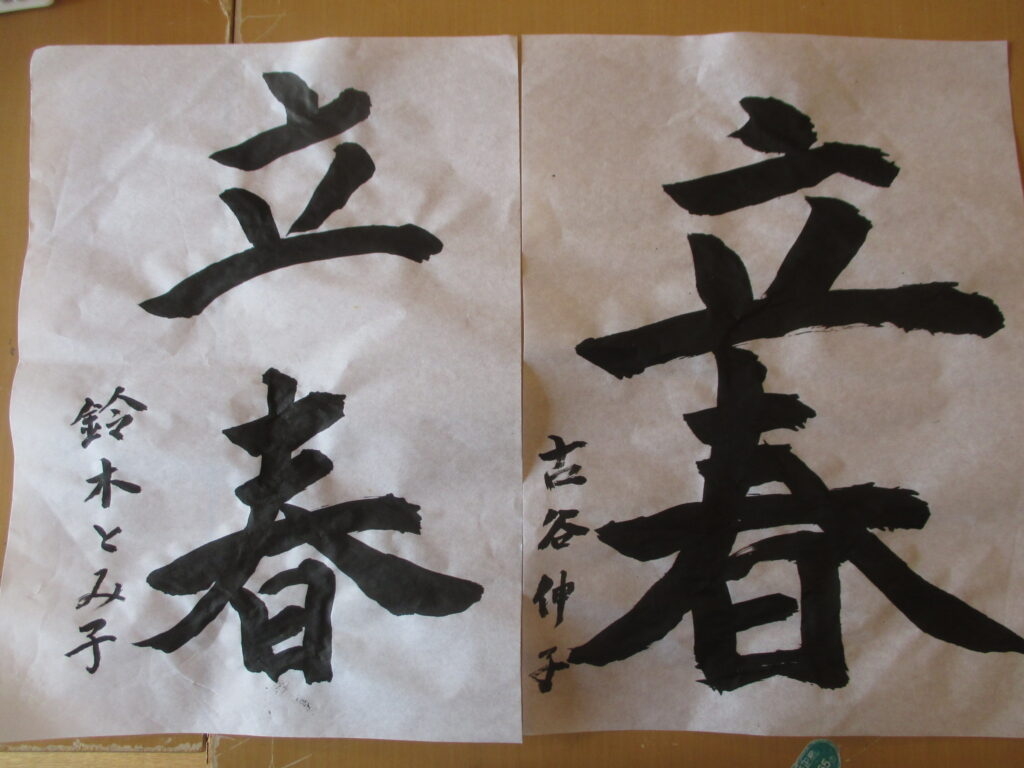 立春
古谷伸子
立春
鈴木とみ子